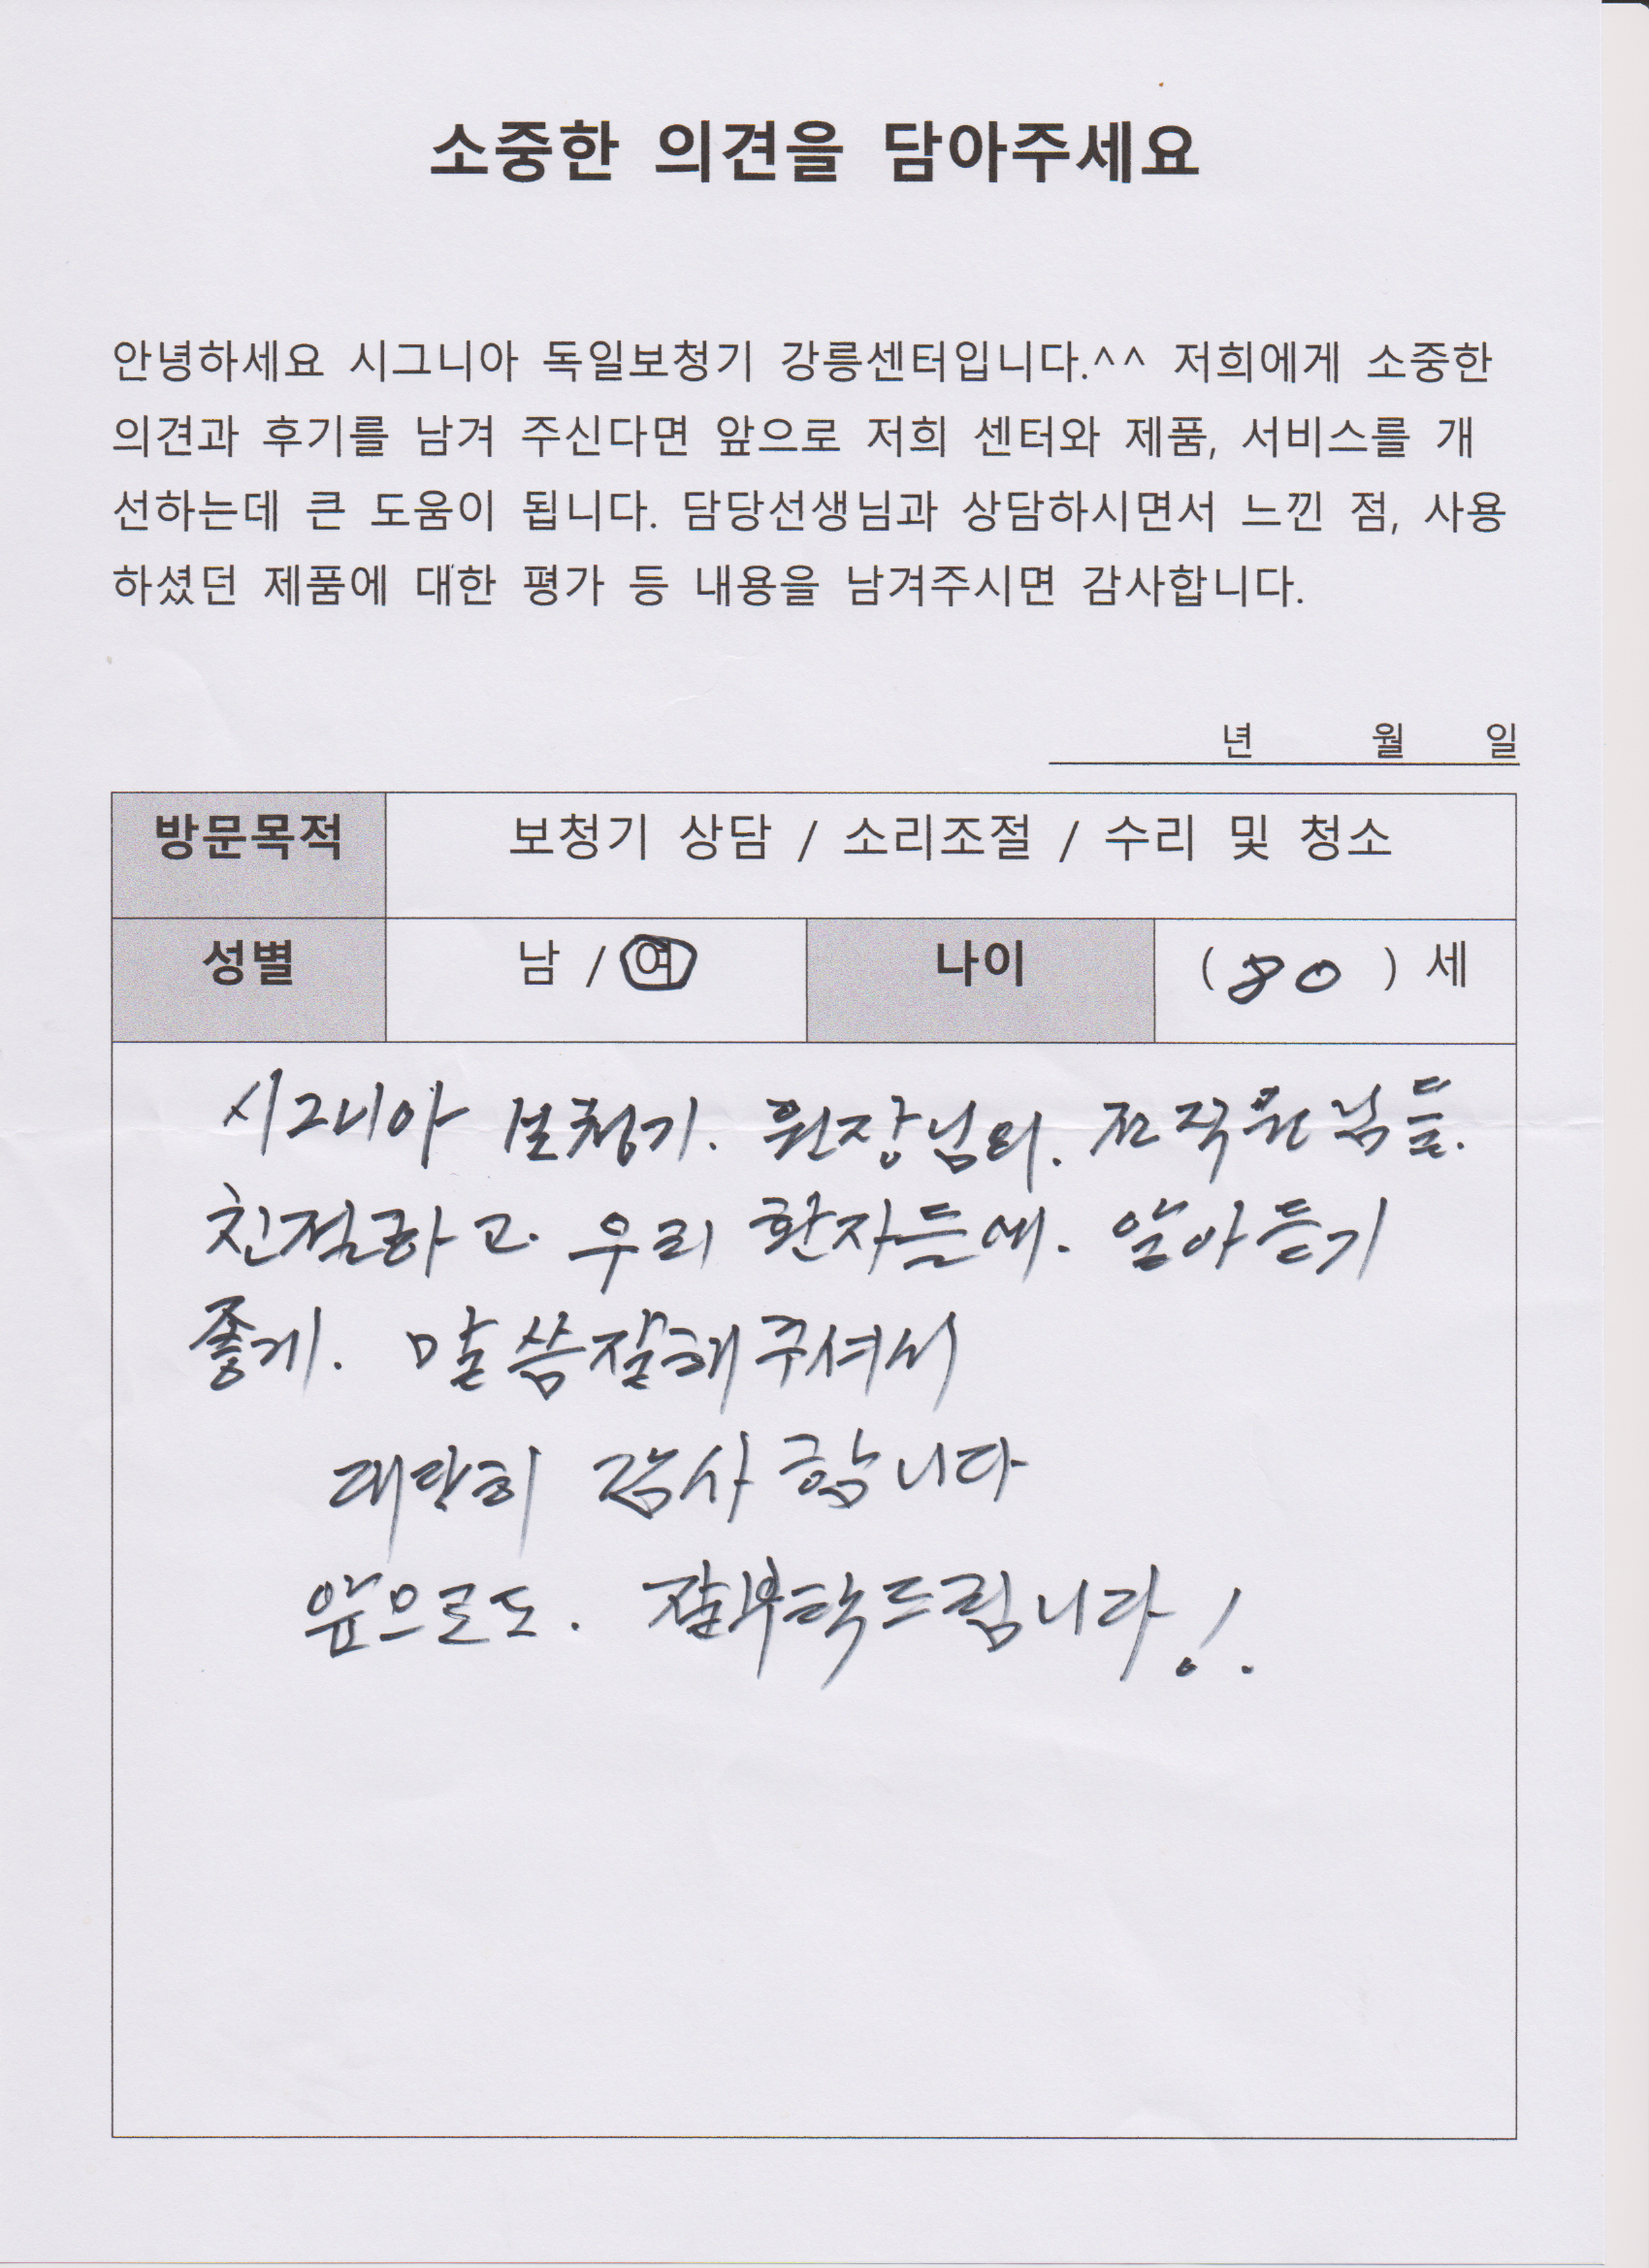 소중한 의견을 담아주세요
안녕하세요 시그니아 독일보청기 강릉센터입니다.^^ 저희에게 소중한
의견과 후기를 남겨 주신다면 앞으로 저희 센터와 제품, 서비스를 개
선하는데 큰 도움이 됩니다. 담당선생님과 상담하시면서 느낀 점, 사용
하셨던 제품에 대한 평가 등 내용을 남겨주시면 감사합니다.
년 월 일
방문목적 보청기 상담 / 소리조절 / 수리 및 청소
성별 남 / 여 나이 ( 80 ) 세
시그니아 보청기. 원장님외. 전직원님들.
친절하고. 우리 환자들에. 알아듣기
좋게. 말씀잘해주셔서
대단히 감사합니다
앞으로도. 잘부탁드립니다!.